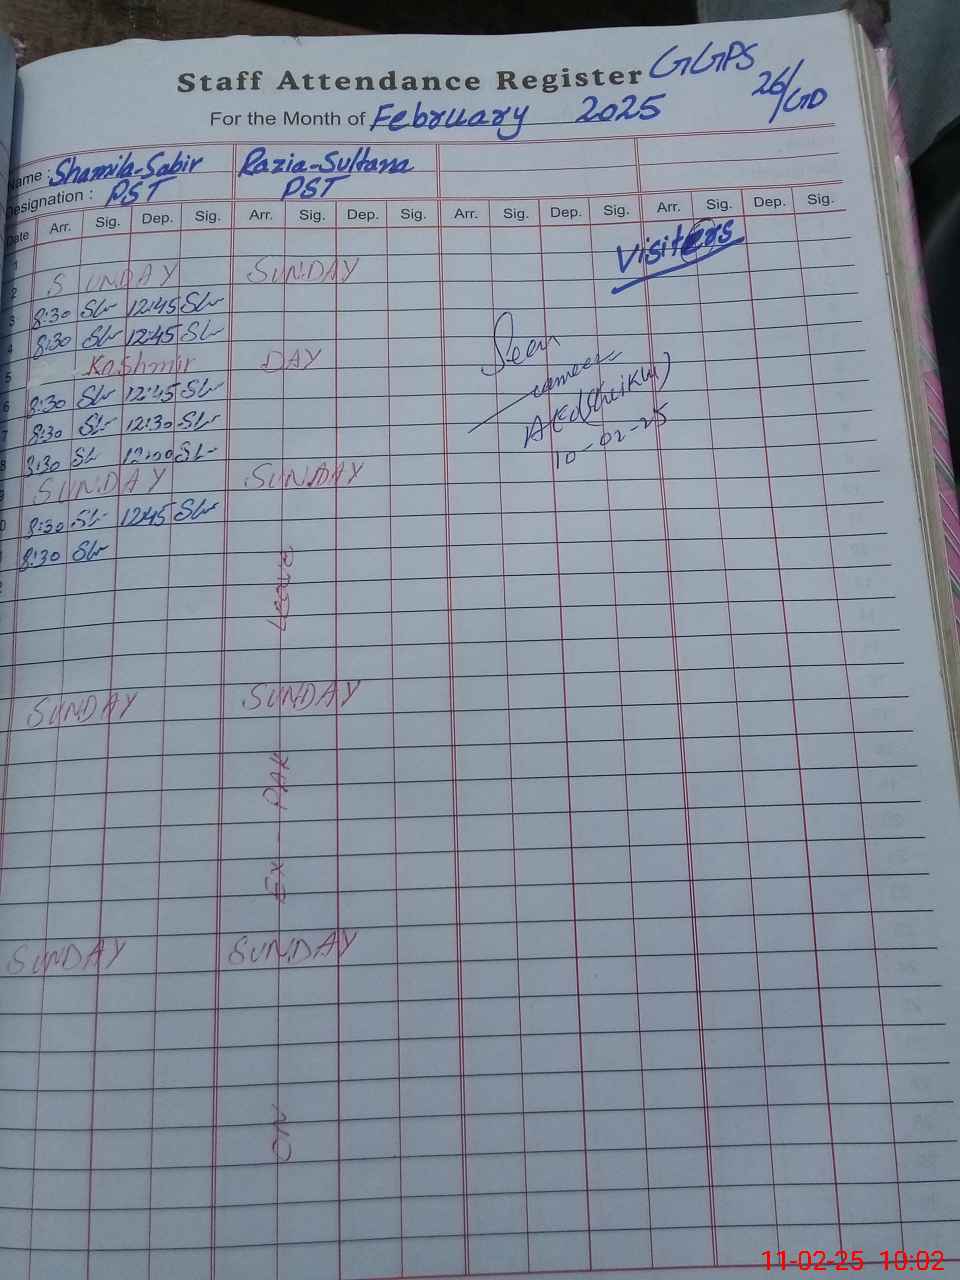 Staff Attendance Register GGPS
26/GD
For the Month of February 2025
Name : Shamila-Sabir Razia-Sultana
Designation : PST PST
Date Arr. Sig. Dep. Sig. Arr. Sig. Dep. Sig. Arr. Sig. Dep. Sig. Arr. Sig. Dep. Sig.
Visiters
1
2 SUNDAY SUNDAY
3 8:30 12:45
4 8:30 12:45
Seen
5 Kashmir DAY
6 8:30 12:45
7 8:30 12:30
8 8:30 12:00
10-02-25
9 SUNDAY SUNDAY
0 8:30 12:45
8:30
Leave
SUNDAY SUNDAY
PAK
EX -
SUNDAY SUNDAY
ON
11-02-25 10:02